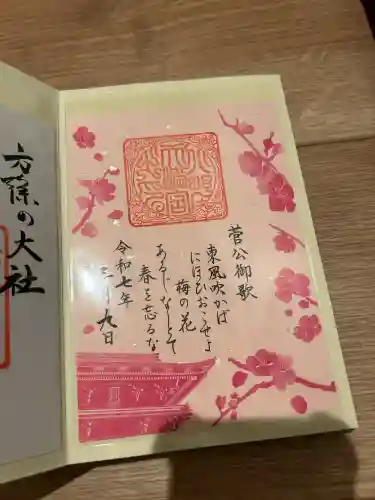 菅公御歌
東風吹かば
にほひおこせよ
梅の花
あるじなしとて
春を忘るな
令和七年
三月九日
方除の大社